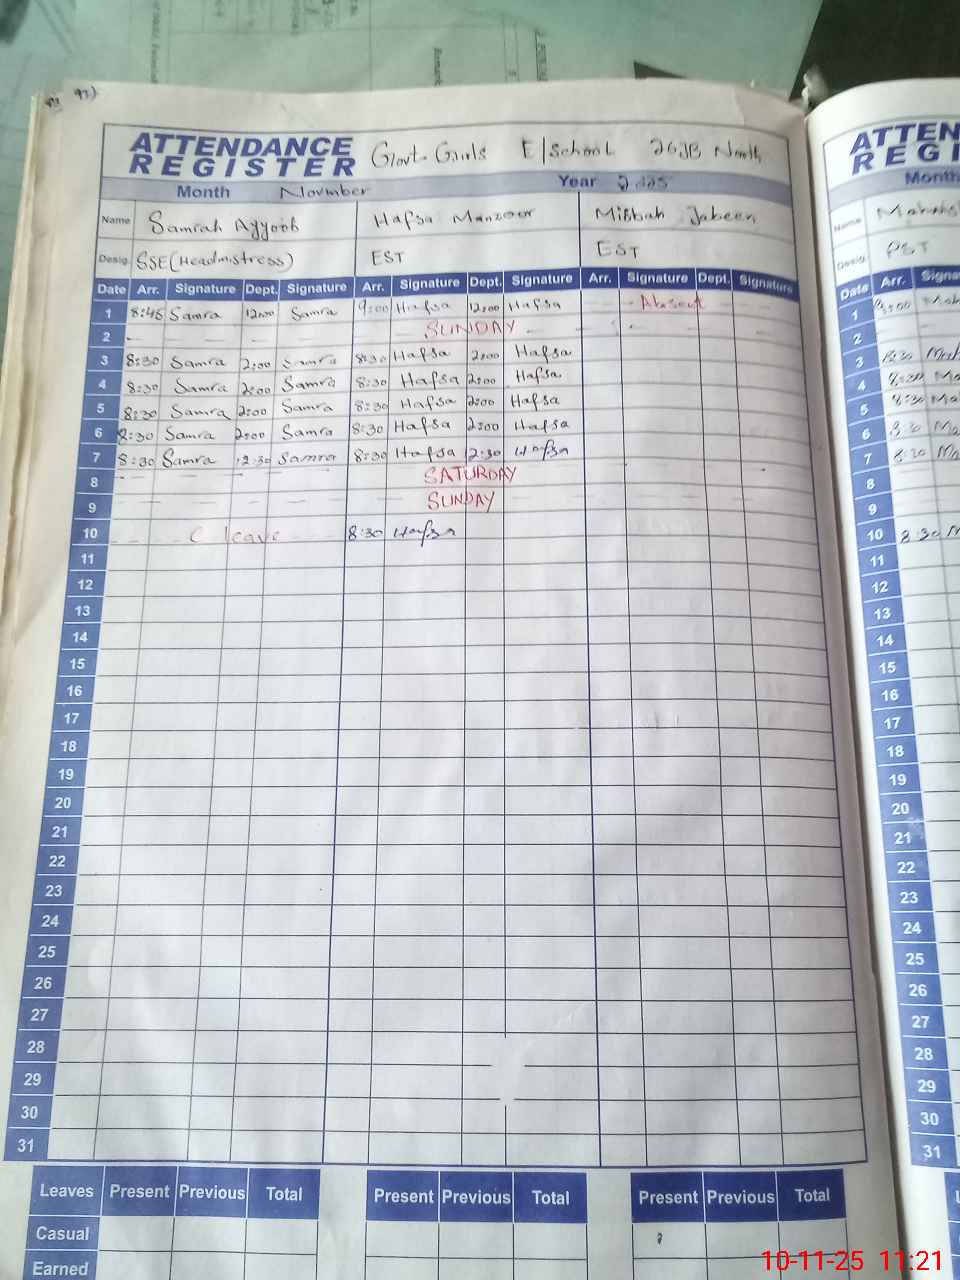 ATTENDANCE REGISTER Govt Girls E/School 26JB North
Month November Year 2025
Name Samrah Ayyoob Hafsa Manzoor Misbah Jabeen
Desig. SSE (Headmistress) EST EST
Date Arr. Signature Dept. Signature Arr. Signature Dept. Signature Arr. Signature Dept. Signature
1 8:45 Samra 12:00 Samra 9:00 Hafsa 12:00 Hafsa Absent
2 SUNDAY
3 8:30 Samra 2:00 Samra 8:30 Hafsa 2:00 Hafsa
4 8:30 Samra 2:00 Samra 8:30 Hafsa 2:00 Hafsa
5 8:30 Samra 2:00 Samra 8:30 Hafsa 2:00 Hafsa
6 8:30 Samra 2:00 Samra 8:30 Hafsa 2:00 Hafsa
7 8:30 Samra 12:30 Samra 8:30 Hafsa 12:30 Hafsa
8 SATURDAY
9 SUNDAY
10 C leave 8:30 Hafsa
11
12
13
14
15
16
17
18
19
20
21
22
23
24
25
26
27
28
29
30
31
Leaves Present Previous Total Present Previous Total Present Previous Total
Casual
Earned
ATTEN
REGI
Month
Name
Desig. PST
Date Arr. Signa
1 9:00
2
3 8:30
4 8:30 Ma
5 8:30 Ma
6 8:30 Ma
7 8:30 Ma
8
9
10 8:30 M
11
12
13
14
15
16
17
18
19
20
21
22
23
24
25
26
27
28
29
30
31
10-11-25 11:21